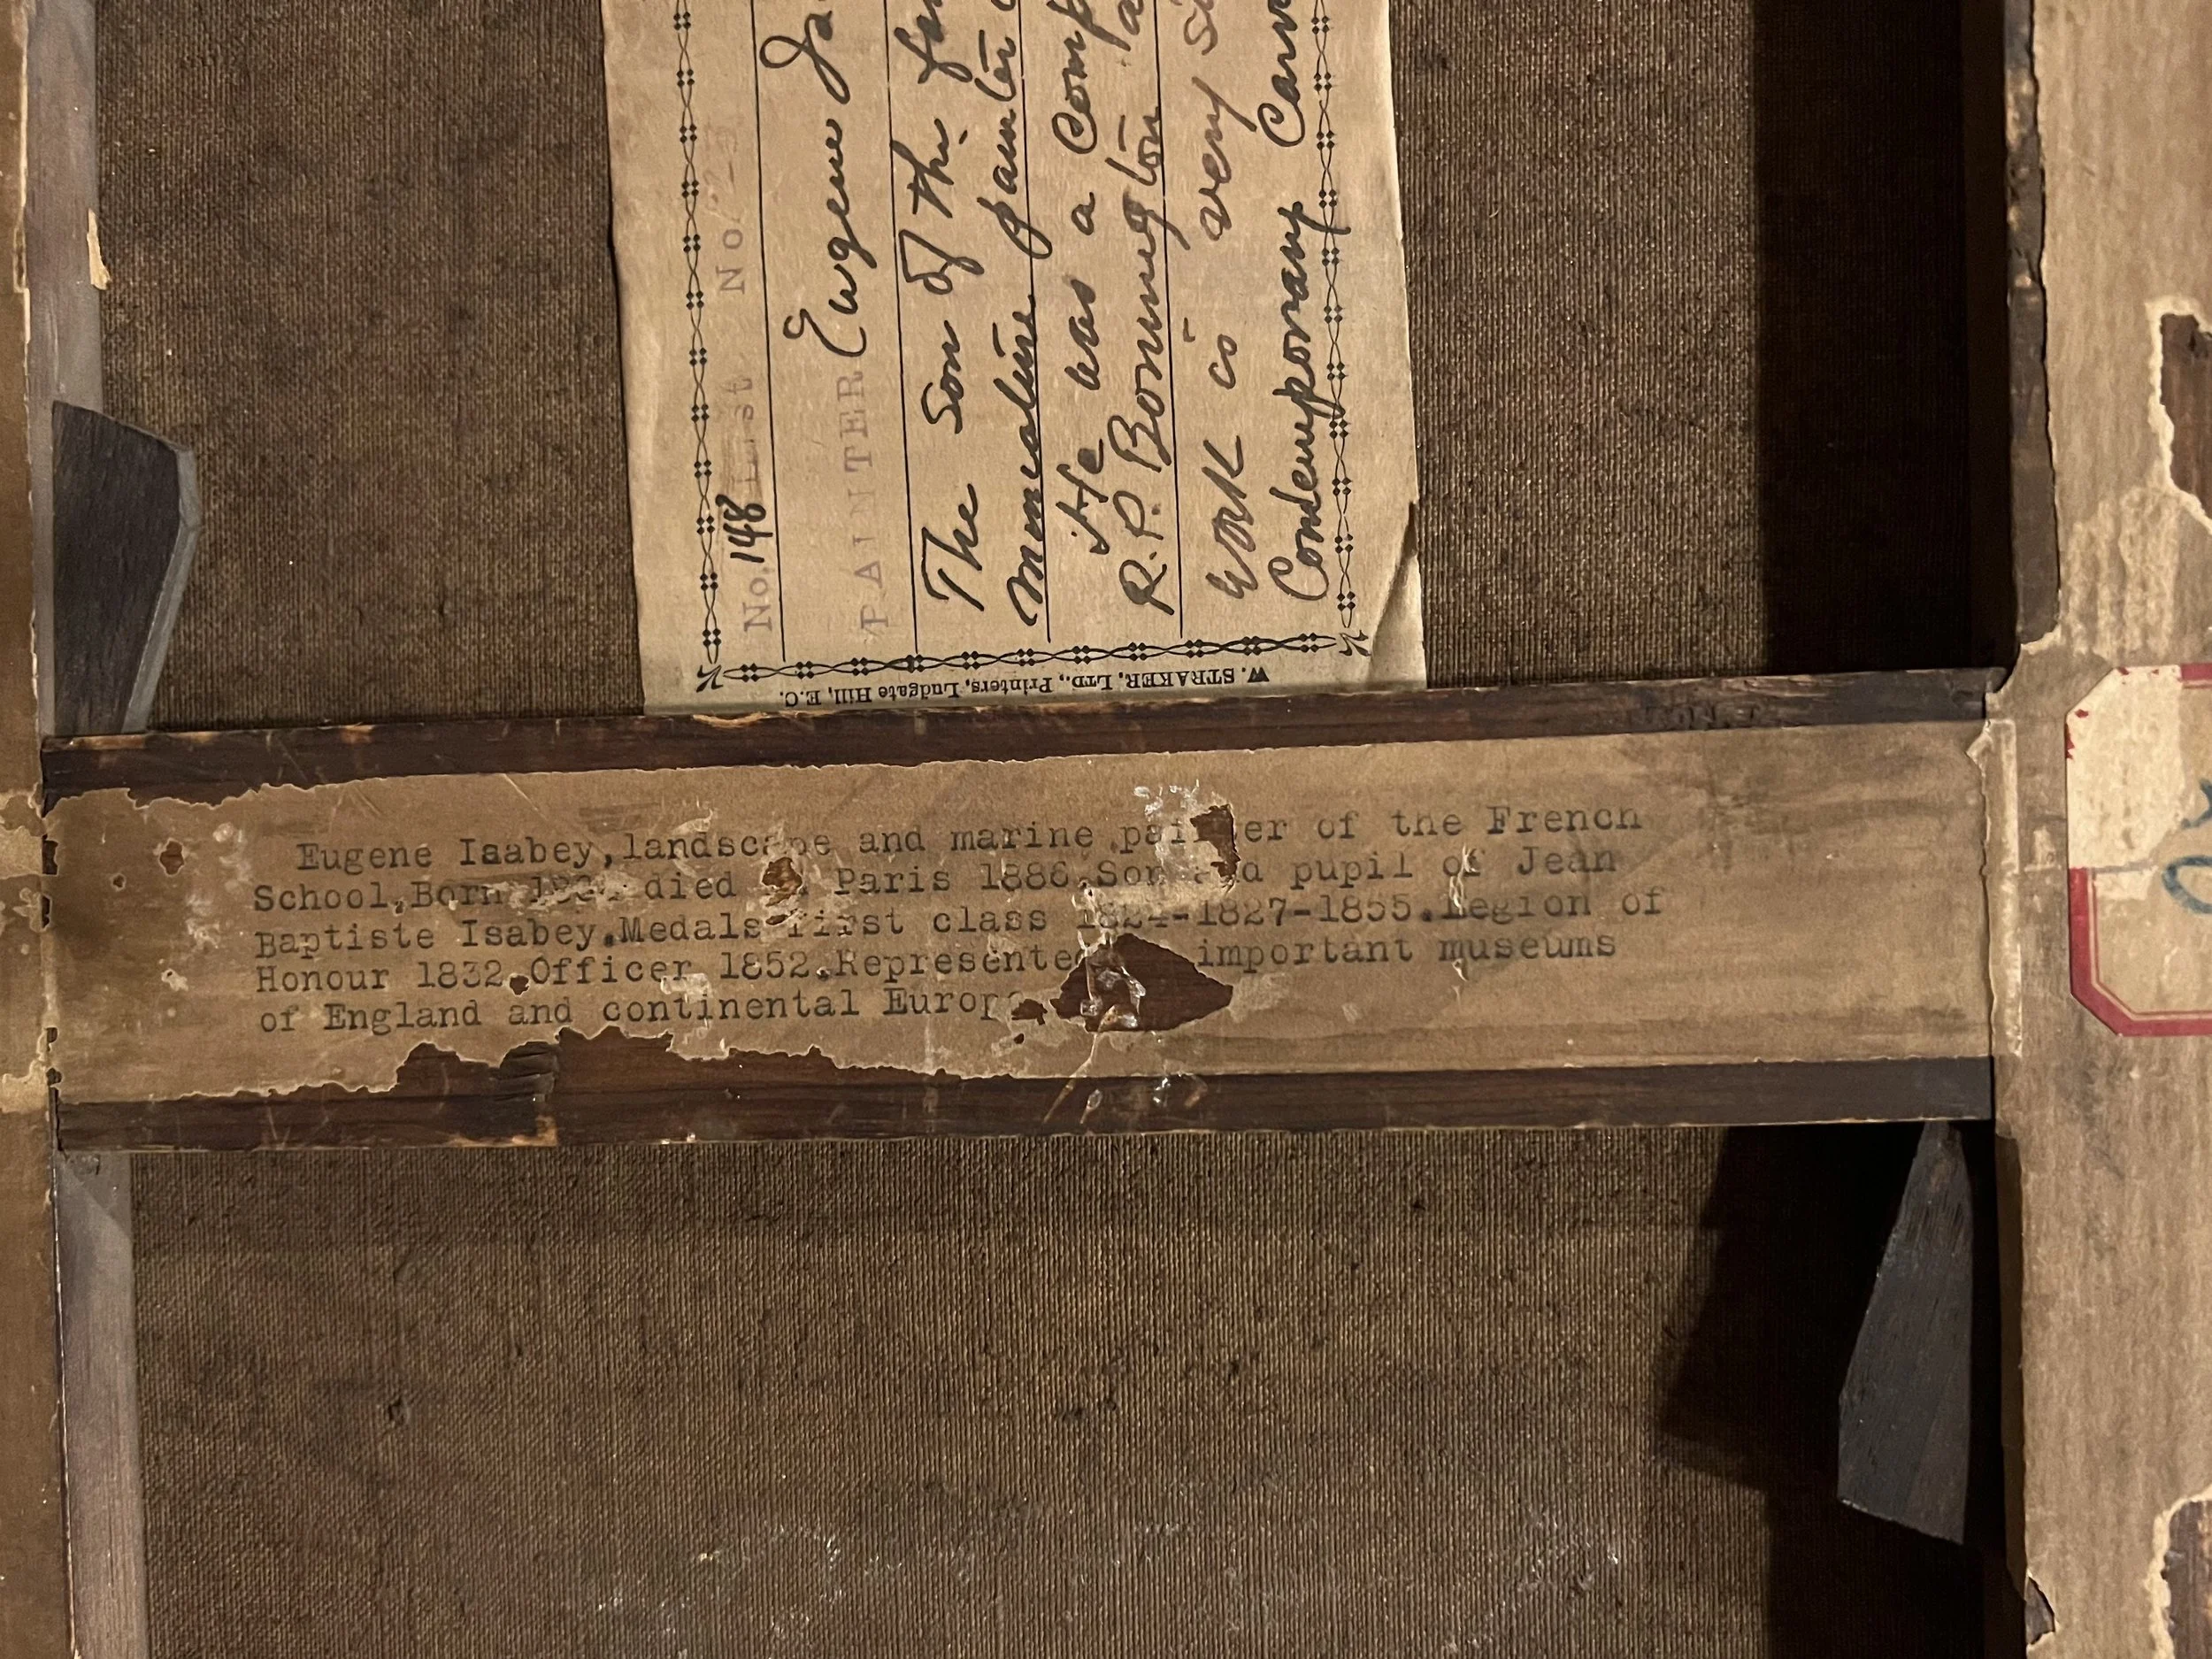 No. 148 List No
PAINTER Eugene
The Son of the
Miniature painter
He was a
R. P. Bonington
work is very
Contemporary
W. STRAKER, LTD., Printers, Ludgate Hill, E.C.
Eugene Isabey,landscape and marine painter of the French
School,Born died Paris 1886.Son and pupil of Jean
Baptiste Isabey.Medals first class 1824-1827-1855.Legion of
Honour 1832.Officer 1852.Represented important museums
of England and continental Europe